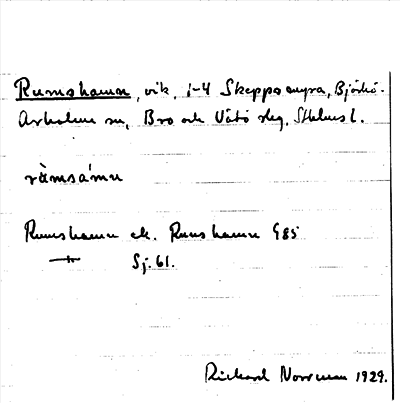 Rumshamn, vik, 1-4 Skeppsmyra, Björkö-
Arholma sn, Bro och Vätö skg, Sthlms l.
ràmsámn
Rumshamn ek. Rumshamn G85
Sj. 61.
Rickard Norrman 1929.